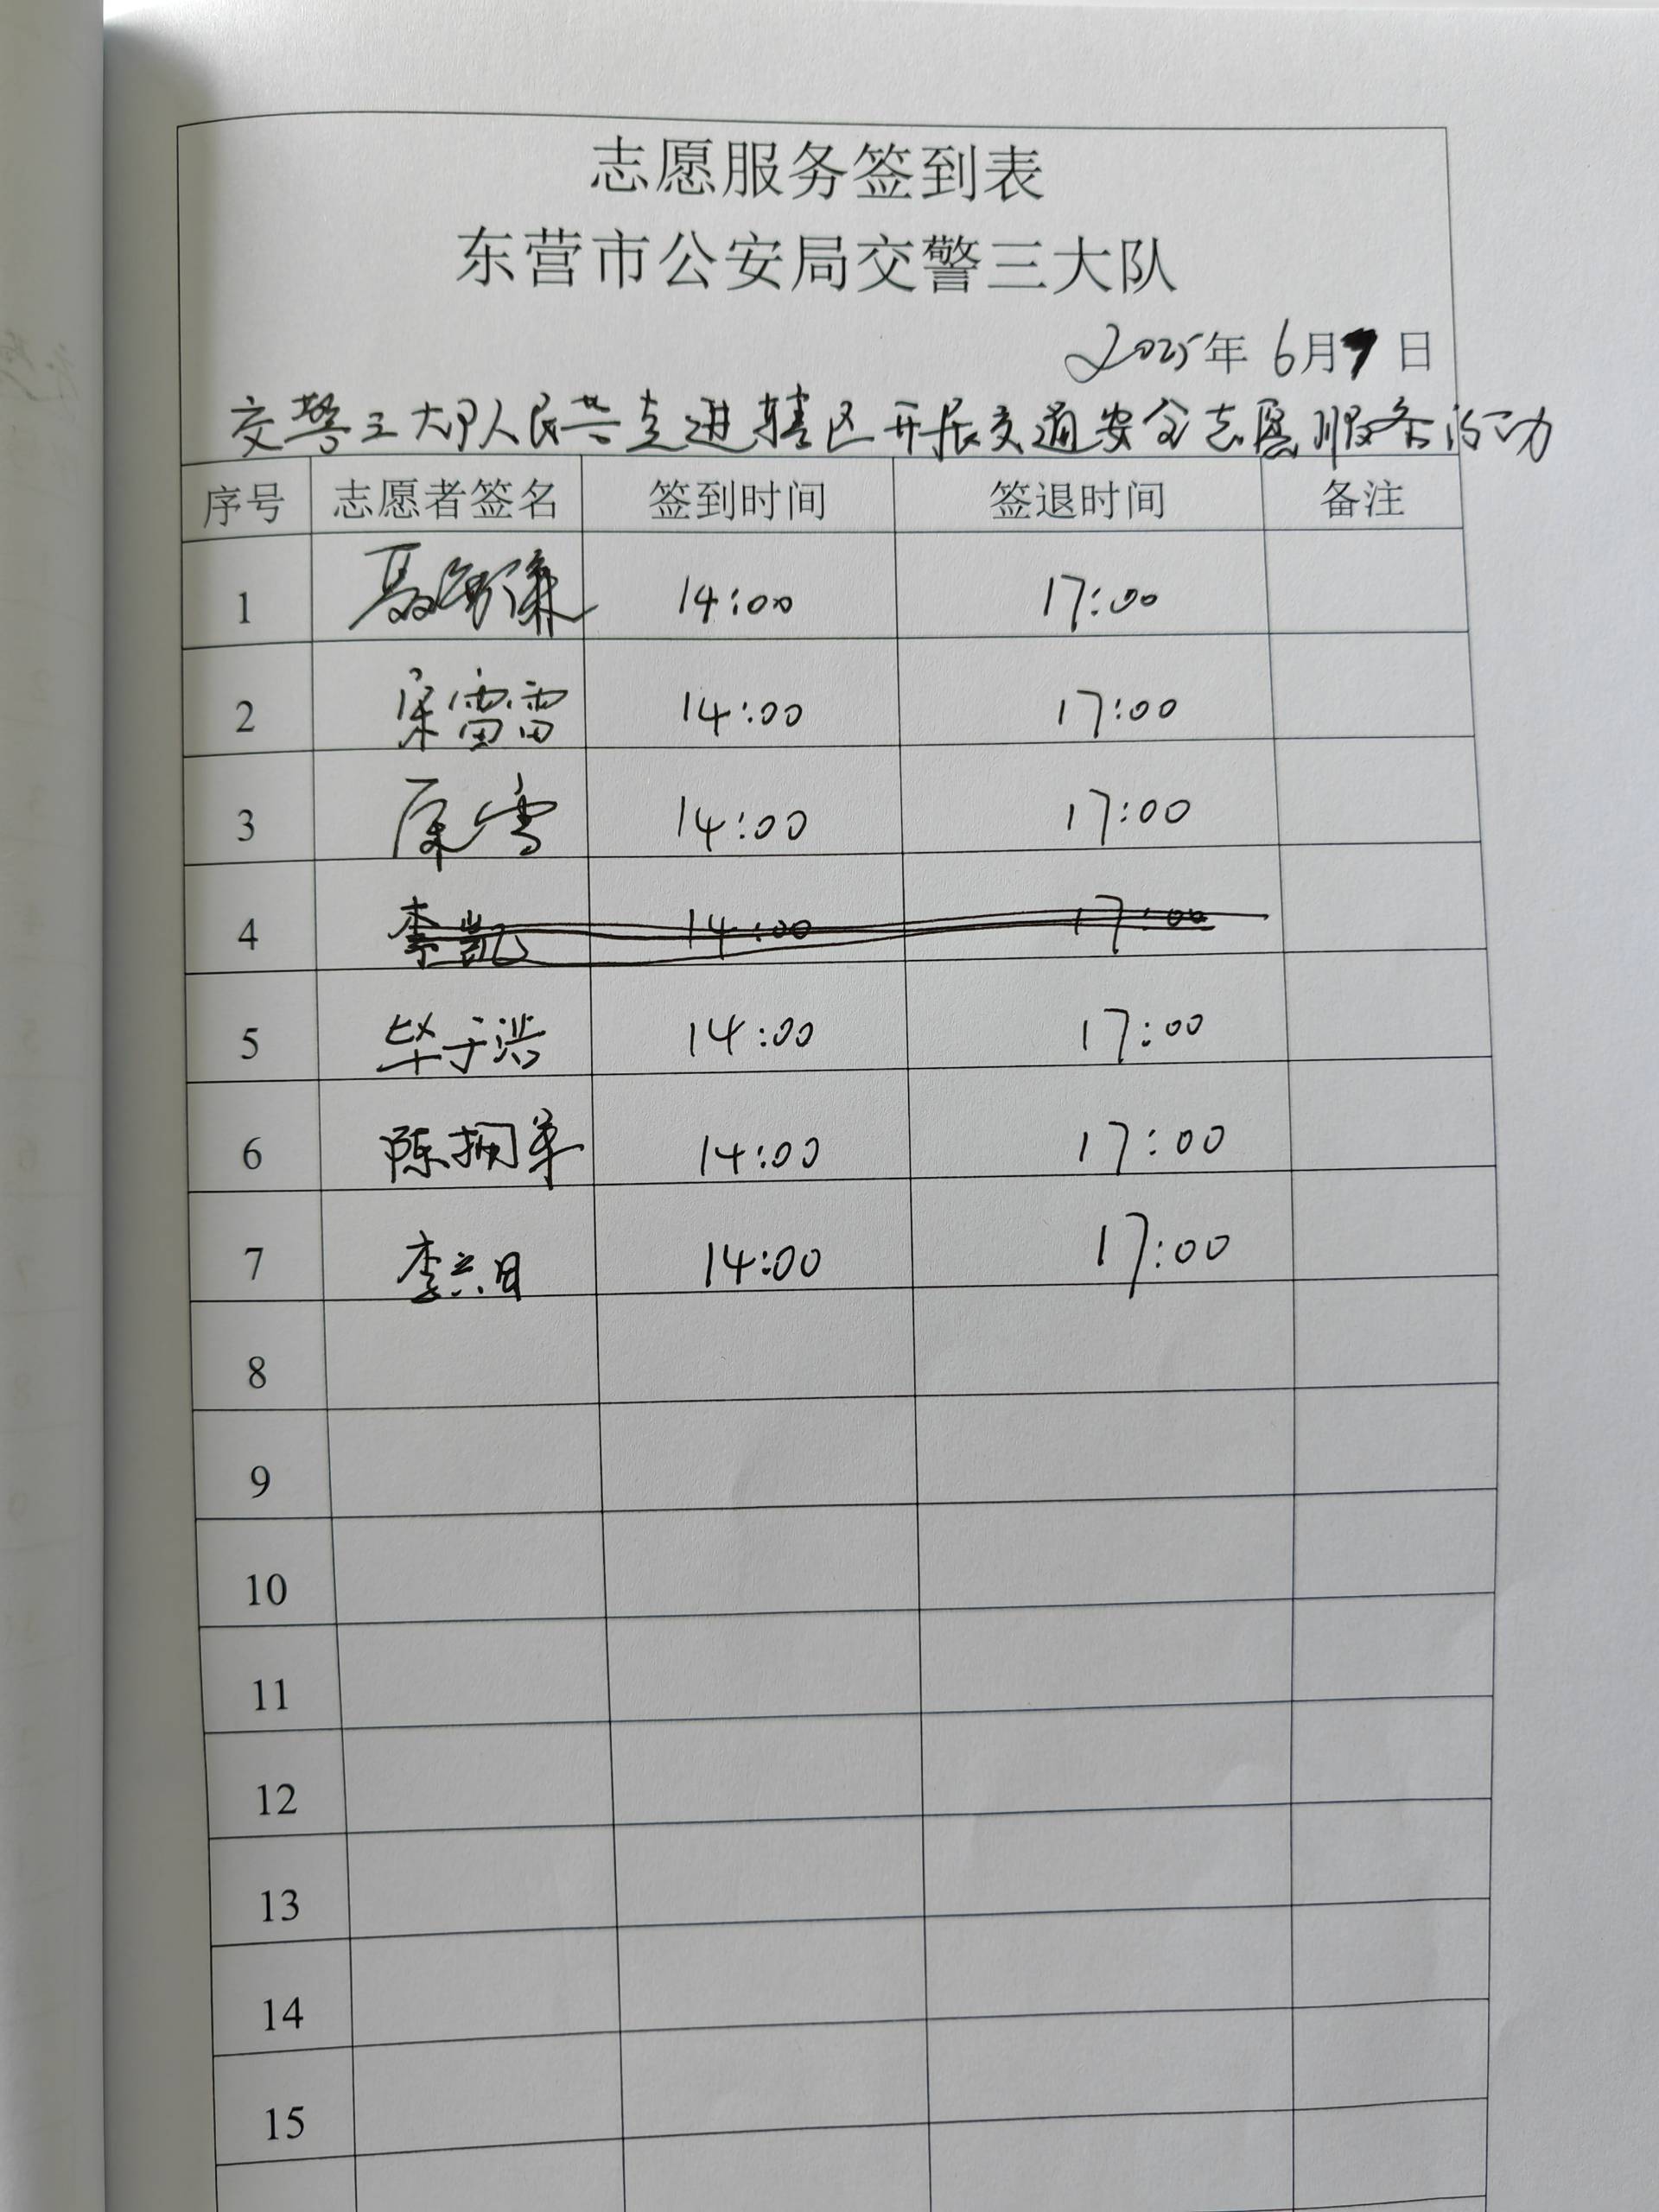 志愿服务签到表
东营市公安局交警三大队
2025年 6月9日
交警三大队人民警走进辖区开展交通安全志愿服务活动
序号 志愿者签名 签到时间 签退时间 备注
1 14:00 17:00
2 宋雷雷 14:00 17:00
3 原雪 14:00 17:00
4 李凯 14:00 17:00
5 毕于浩 14:00 17:00
6 陈拥军 14:00 17:00
7 14:00 17:00
8
9
10
11
12
13
14
15